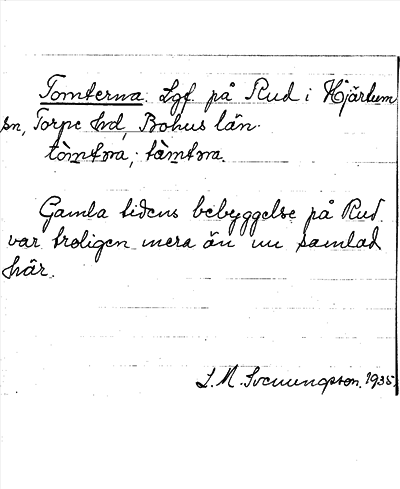 Tomterna. Lgf. på Rud i Hjärtum
sn, Torpe hd, Bohus län.
tòmtəɳa; tàmtəɳa.
Gamla tidens bebyggelse på Rud
var troligen mera än nu samlad
här.
L. M. Svenungsson. 1935.